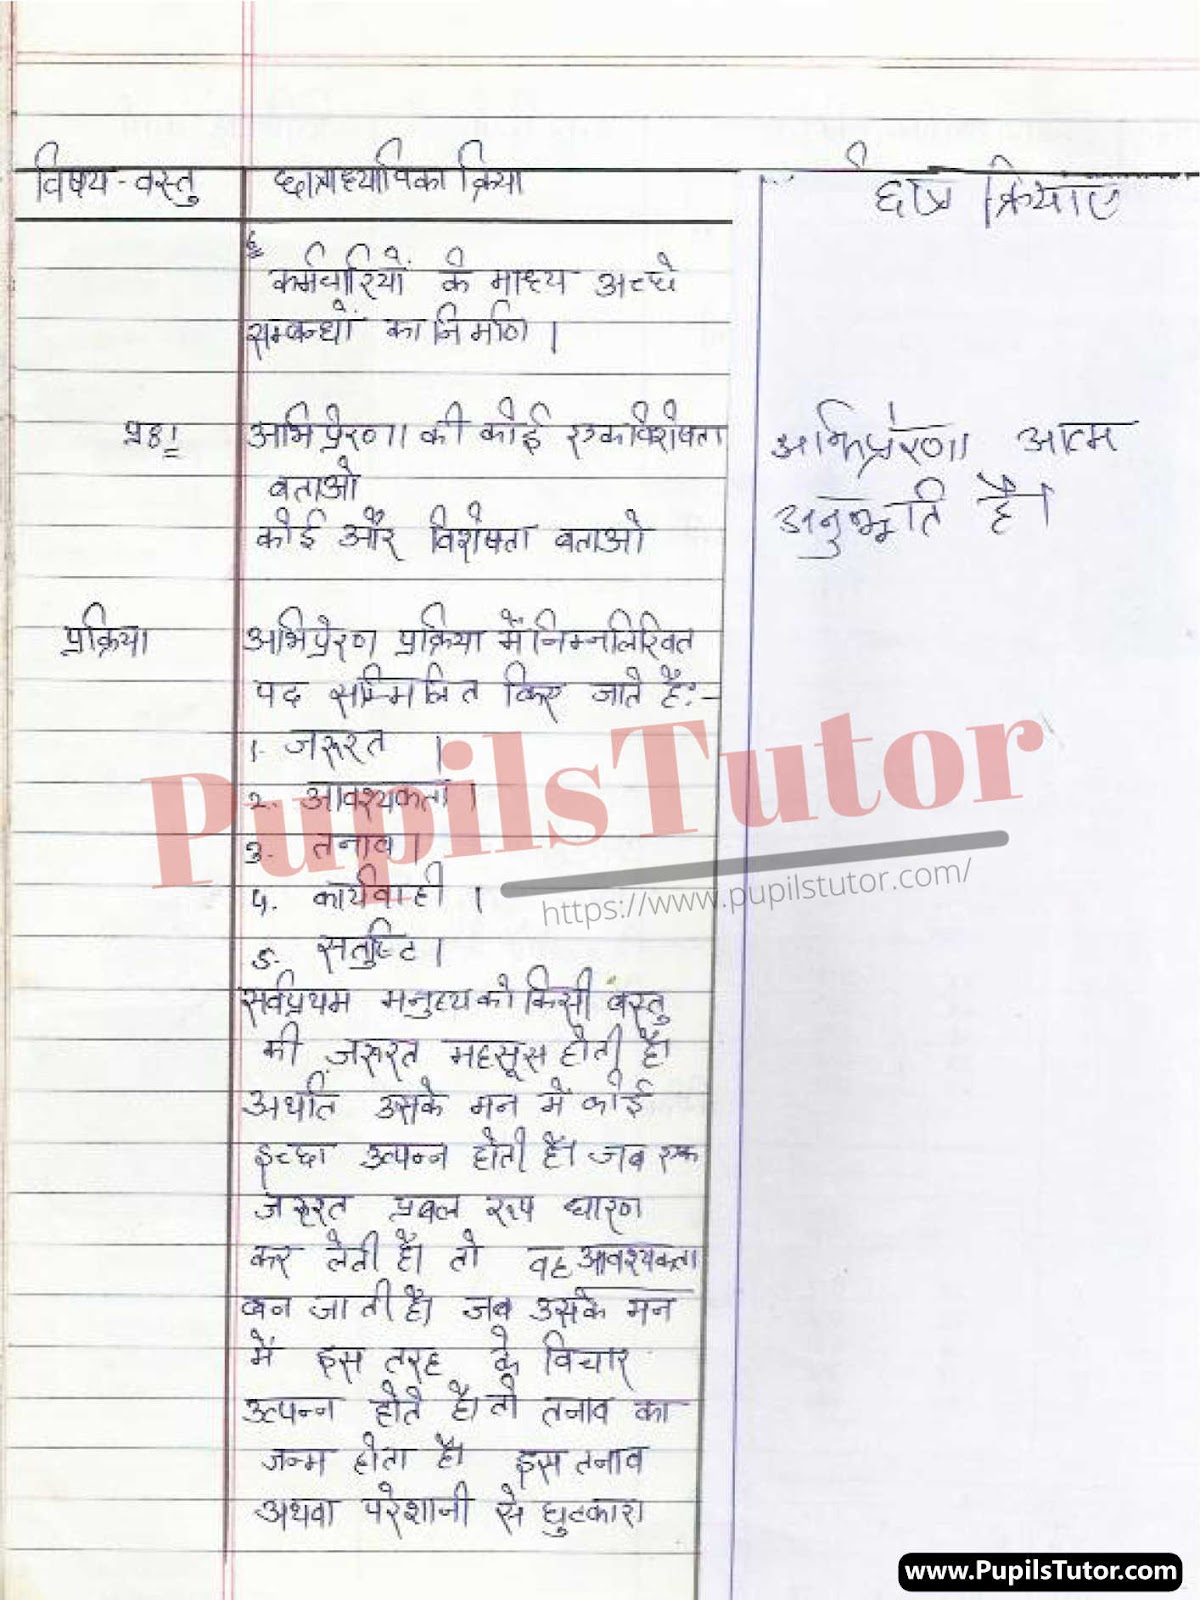 विषय-वस्तु
छात्राध्यापिका क्रिया
छात्र क्रियाए
६
कर्मचारियों के माध्य अच्छे
सम्बन्धों का निर्माण ।
प्रश्न
अभिप्रेरणा की कोई एक विशेषता
बताओ
कोई और विशेषता बताओ
अभिप्रेरणा आत्म
अनुभूति है।
प्रक्रिया
अभिप्रेरण प्रक्रिया में निम्नलिखित
पद सम्मिलित किए जाते है:-
1. जरूरत ।
2. आवश्यकता।
3. तनाव।
4. कार्यवाही ।
5. सतुष्टि।
सर्वप्रथम मनुष्य को किसी वस्तु
की जरूरत महसूस होती है।
अर्थात उसके मन में कोई
इच्छा उत्पन्न होती है। जब एक
जरूरत प्रबल रूप धारण
कर लेती है। तो वह आवश्यकता
बन जाती है। जब उसके मन
में इस तरह के विचार
उत्पन्न होते है। तो तनाव का
जन्म होता है। इस तनाव
अथवा परेशानी से छुटकारा
PupilsTutor
https://www.pupilstutor.com/
www.PupilsTutor.com